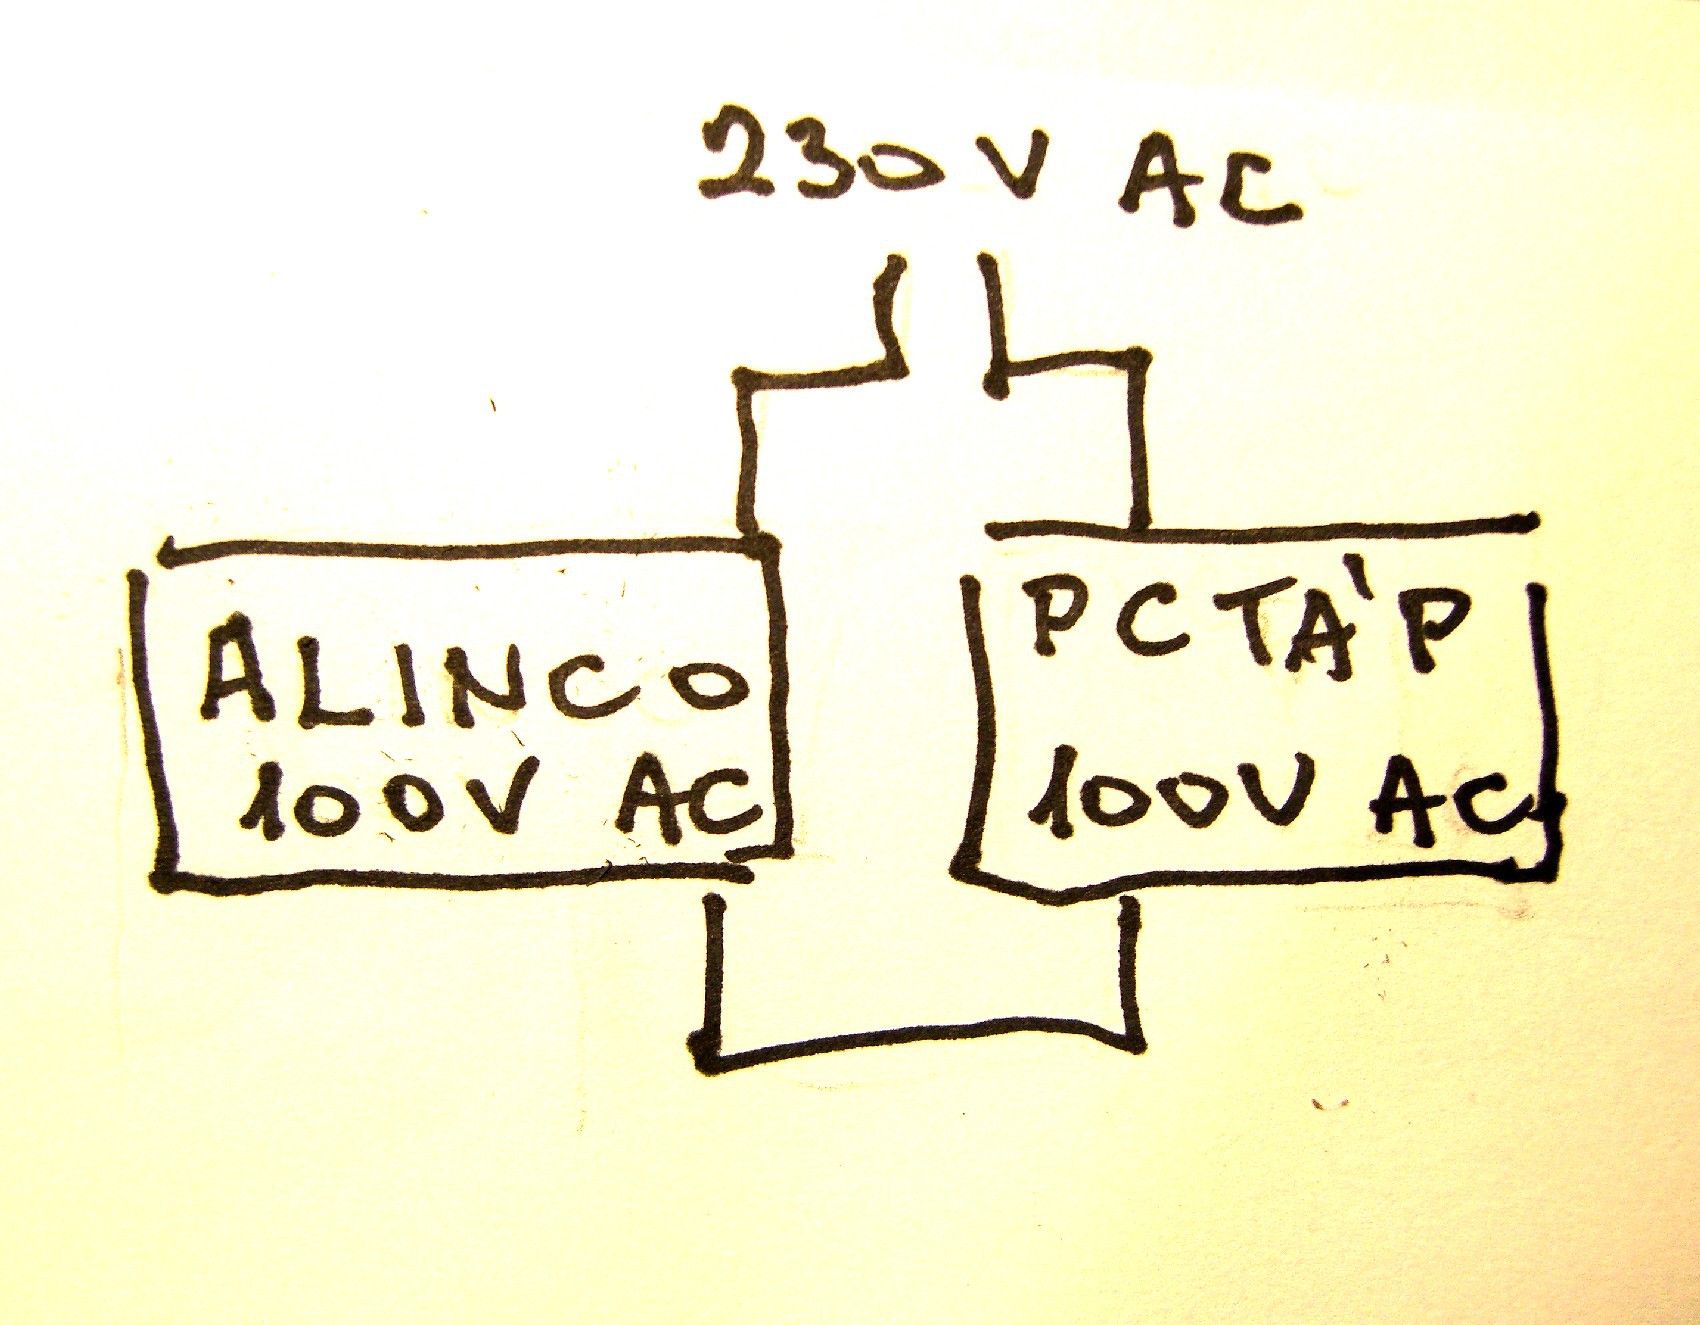 230V AC
ALINCO
100V AC
PCTÁP
100V AC